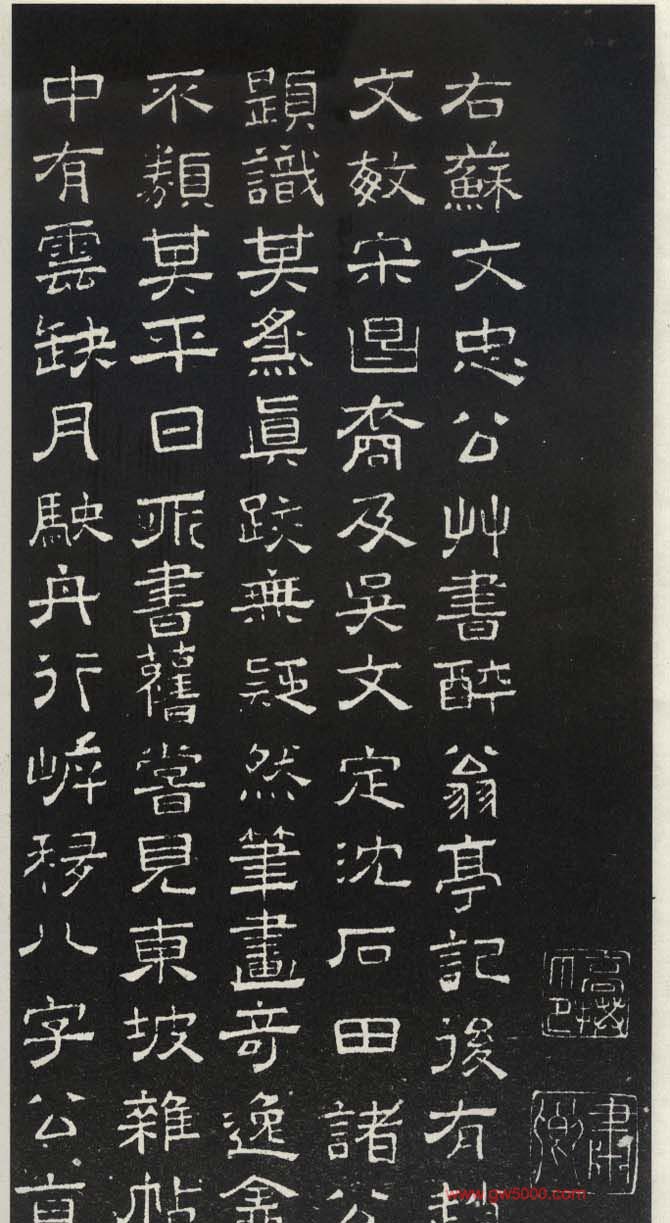 右蘇文忠公艸書醉翁亭記後有趙
文敏宋昌裔及吳文定沈石田諸公
題識其為眞跡無疑然筆畫奇逸
不類其平日所書舊嘗見東坡雜帖
中有雲缺月駛舟行岸移八字公
肅卿
www.gw5000.com